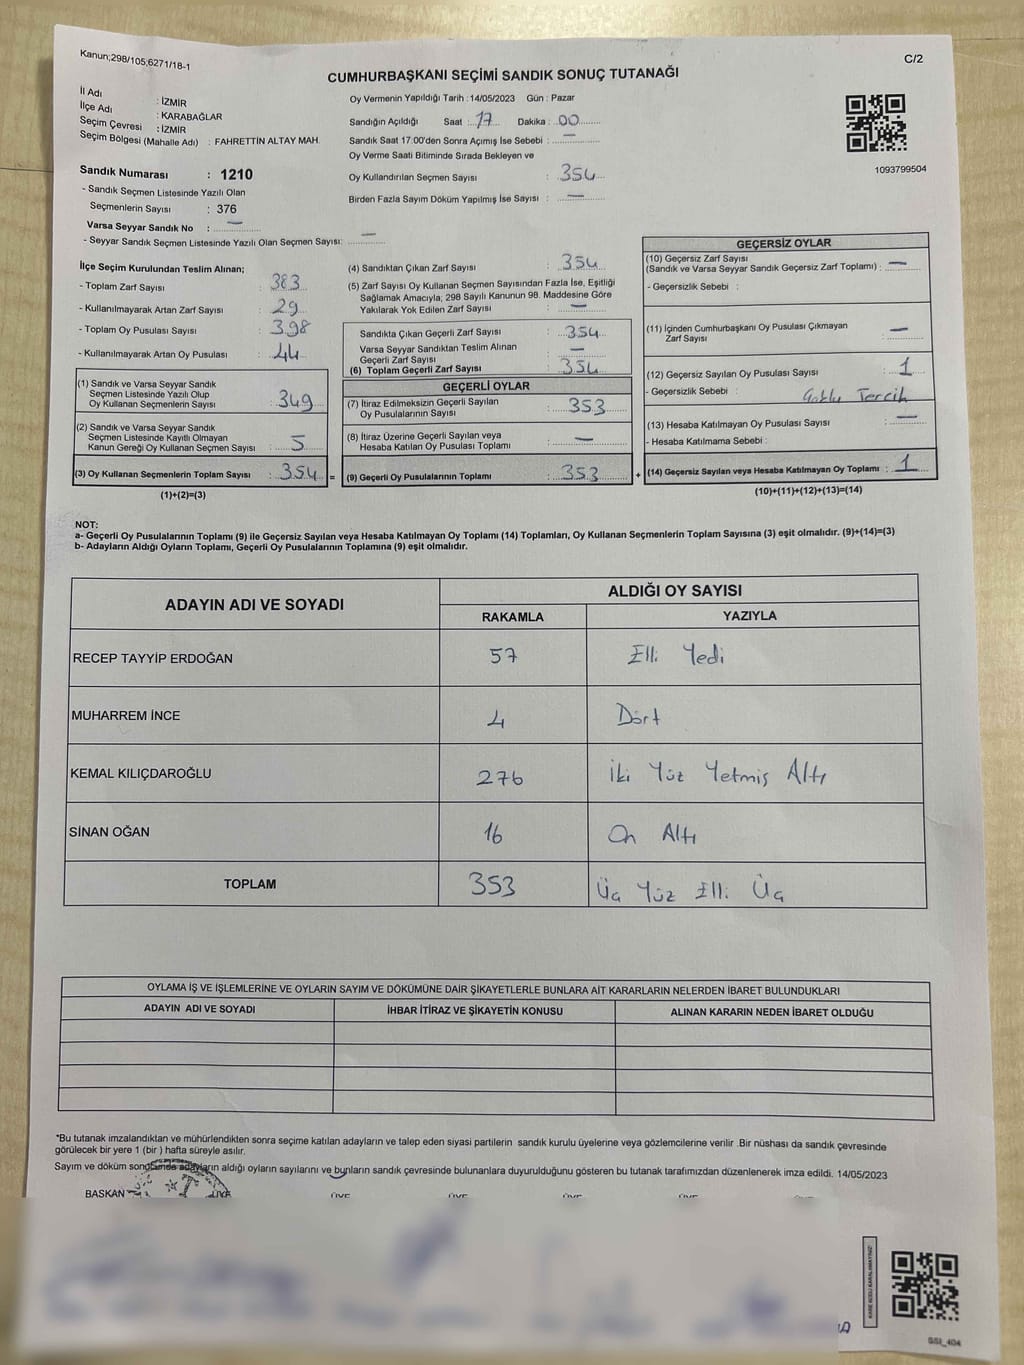 Kanun;298/105;6271/18-1
C/2
CUMHURBAŞKANI SEÇİMİ SANDIK SONUÇ TUTANAĞI
İl Adı : İZMİR
İlçe Adı : KARABAĞLAR
Seçim Çevresi : İZMİR
Seçim Bölgesi (Mahalle Adı) : FAHRETTİN ALTAY MAH.
Sandık Numarası : 1210
- Sandık Seçmen Listesinde Yazılı Olan
Seçmenlerin Sayısı : 376
Varsa Seyyar Sandık No : —
- Seyyar Sandık Seçmen Listesinde Yazılı Olan Seçmen Sayısı: —
Oy Vermenin Yapıldığı Tarih : 14/05/2023 Gün : Pazar
Sandığın Açıldığı Saat : 17 Dakika : 00
Sandık Saat 17:00'den Sonra Açımış İse Sebebi : —
Oy Verme Saati Bitiminde Sırada Bekleyen ve
Oy Kullandırılan Seçmen Sayısı : 354
Birden Fazla Sayım Döküm Yapılmış İse Sayısı : —
1093799504
İlçe Seçim Kurulundan Teslim Alınan;
- Toplam Zarf Sayısı : 383
- Kullanılmayarak Artan Zarf Sayısı : 29
- Toplam Oy Pusulası Sayısı : 398
- Kullanılmayarak Artan Oy Pusulası : 44
(1) Sandık ve Varsa Seyyar Sandık
Seçmen Listesinde Yazılı Olup
Oy Kullanan Seçmenlerin Sayısı : 349
(2) Sandık ve Varsa Seyyar Sandık
Seçmen Listesinde Kayıtlı Olmayan
Kanun Gereği Oy Kullanan Seçmen Sayısı : 5
(3) Oy Kullanan Seçmenlerin Toplam Sayısı : 354 =
(1)+(2)=(3)
(4) Sandıktan Çıkan Zarf Sayısı : 354
(5) Zarf Sayısı Oy Kullanan Seçmen Sayısından Fazla İse, Eşitliği
Sağlamak Amacıyla; 298 Sayılı Kanunun 98. Maddesine Göre
Yakılarak Yok Edilen Zarf Sayısı : —
Sandıkta Çıkan Geçerli Zarf Sayısı : 354
Varsa Seyyar Sandıktan Teslim Alınan
Geçerli Zarf Sayısı : —
(6) Toplam Geçerli Zarf Sayısı : 354
GEÇERLİ OYLAR
(7) İtiraz Edilmeksizin Geçerli Sayılan
Oy Pusulalarının Sayısı : 353
(8) İtiraz Üzerine Geçerli Sayılan veya
Hesaba Katılan Oy Pusulası Toplamı : —
(9) Geçerli Oy Pusulalarının Toplamı : 353 +
GEÇERSİZ OYLAR
(10) Geçersiz Zarf Sayısı
(Sandık ve Varsa Seyyar Sandık Geçersiz Zarf Toplamı) : —
- Geçersizlik Sebebi :
(11) İçinden Cumhurbaşkanı Oy Pusulası Çıkmayan
Zarf Sayısı : —
(12) Geçersiz Sayılan Oy Pusulası Sayısı : 1
- Geçersizlik Sebebi : Çoklu Tercih
(13) Hesaba Katılmayan Oy Pusulası Sayısı : —
- Hesaba Katılmama Sebebi :
(14) Geçersiz Sayılan veya Hesaba Katılmayan Oy Toplamı : 1
(10)+(11)+(12)+(13)=(14)
NOT:
a- Geçerli Oy Pusulalarının Toplamı (9) ile Geçersiz Sayılan veya Hesaba Katılmayan Oy Toplamı (14) Toplamları, Oy Kullanan Seçmenlerin Toplam Sayısına (3) eşit olmalıdır. (9)+(14)=(3)
b- Adayların Aldığı Oyların Toplamı, Geçerli Oy Pusulalarının Toplamına (9) eşit olmalıdır.
ADAYIN ADI VE SOYADI
ALDIĞI OY SAYISI
RAKAMLA YAZIYLA
RECEP TAYYİP ERDOĞAN 57 Elli Yedi
MUHARREM İNCE 4 Dört
KEMAL KILIÇDAROĞLU 276 İki Yüz Yetmiş Altı
SİNAN OĞAN 16 On Altı
TOPLAM 353 Üç Yüz Elli Üç
OYLAMA İŞ VE İŞLEMLERİNE VE OYLARIN SAYIM VE DÖKÜMÜNE DAİR ŞİKAYETLERLE BUNLARA AİT KARARLARIN NELERDEN İBARET BULUNDUKLARI
ADAYIN ADI VE SOYADI İHBAR İTİRAZ VE ŞİKAYETİN KONUSU ALINAN KARARIN NEDEN İBARET OLDUĞU
*Bu tutanak imzalandıktan ve mühürlendikten sonra seçime katılan adayların ve talep eden siyasi partilerin sandık kurulu üyelerine veya gözlemcilerine verilir .Bir nüshası da sandık çevresinde
görülecek bir yere 1 (bir ) hafta süreyle asılır.
Sayım ve döküm sonucunda adayların aldığı oyların sayılarını ve bunların sandık çevresinde bulunanlara duyurulduğunu gösteren bu tutanak tarafımızdan düzenlenerek imza edildi. 14/05/2023
BAŞKAN ÜYE ÜYE ÜYE ÜYE ÜYE
KARE KODU KARALAMAYINIZ!
SSI_404